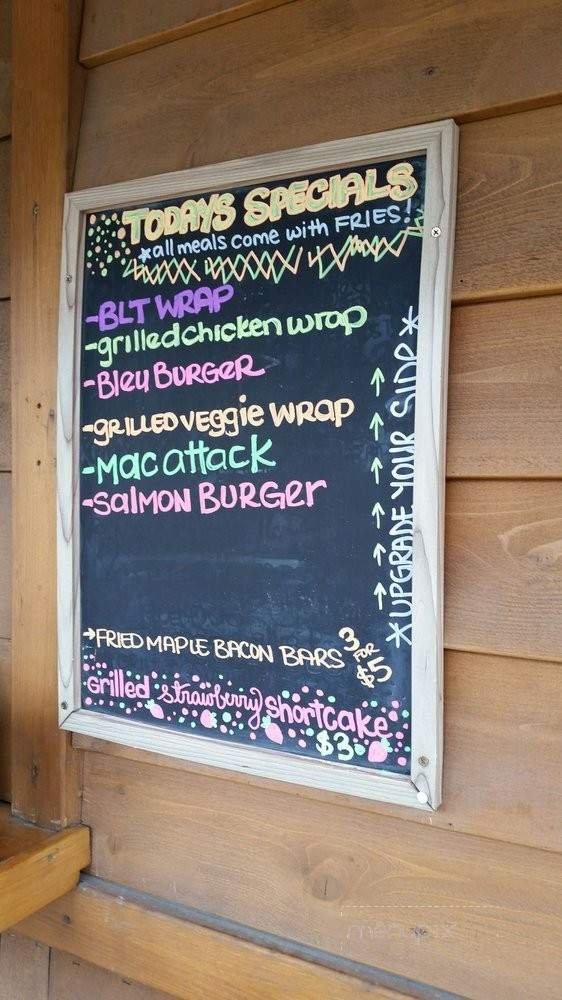 TODAYS SPECIALS
*all meals come with FRIES!
-BLT WRAP
-grilled chicken wrap
-Bleu BURGER
-GRILLED veggie WRAP
-Mac attack
-Salmon BURGER
*UPGRADE YOUR SIDE*
→FRIED MAPLE BACON BARS 3 FOR $5
grilled strawberry shortcake
$3
menupix